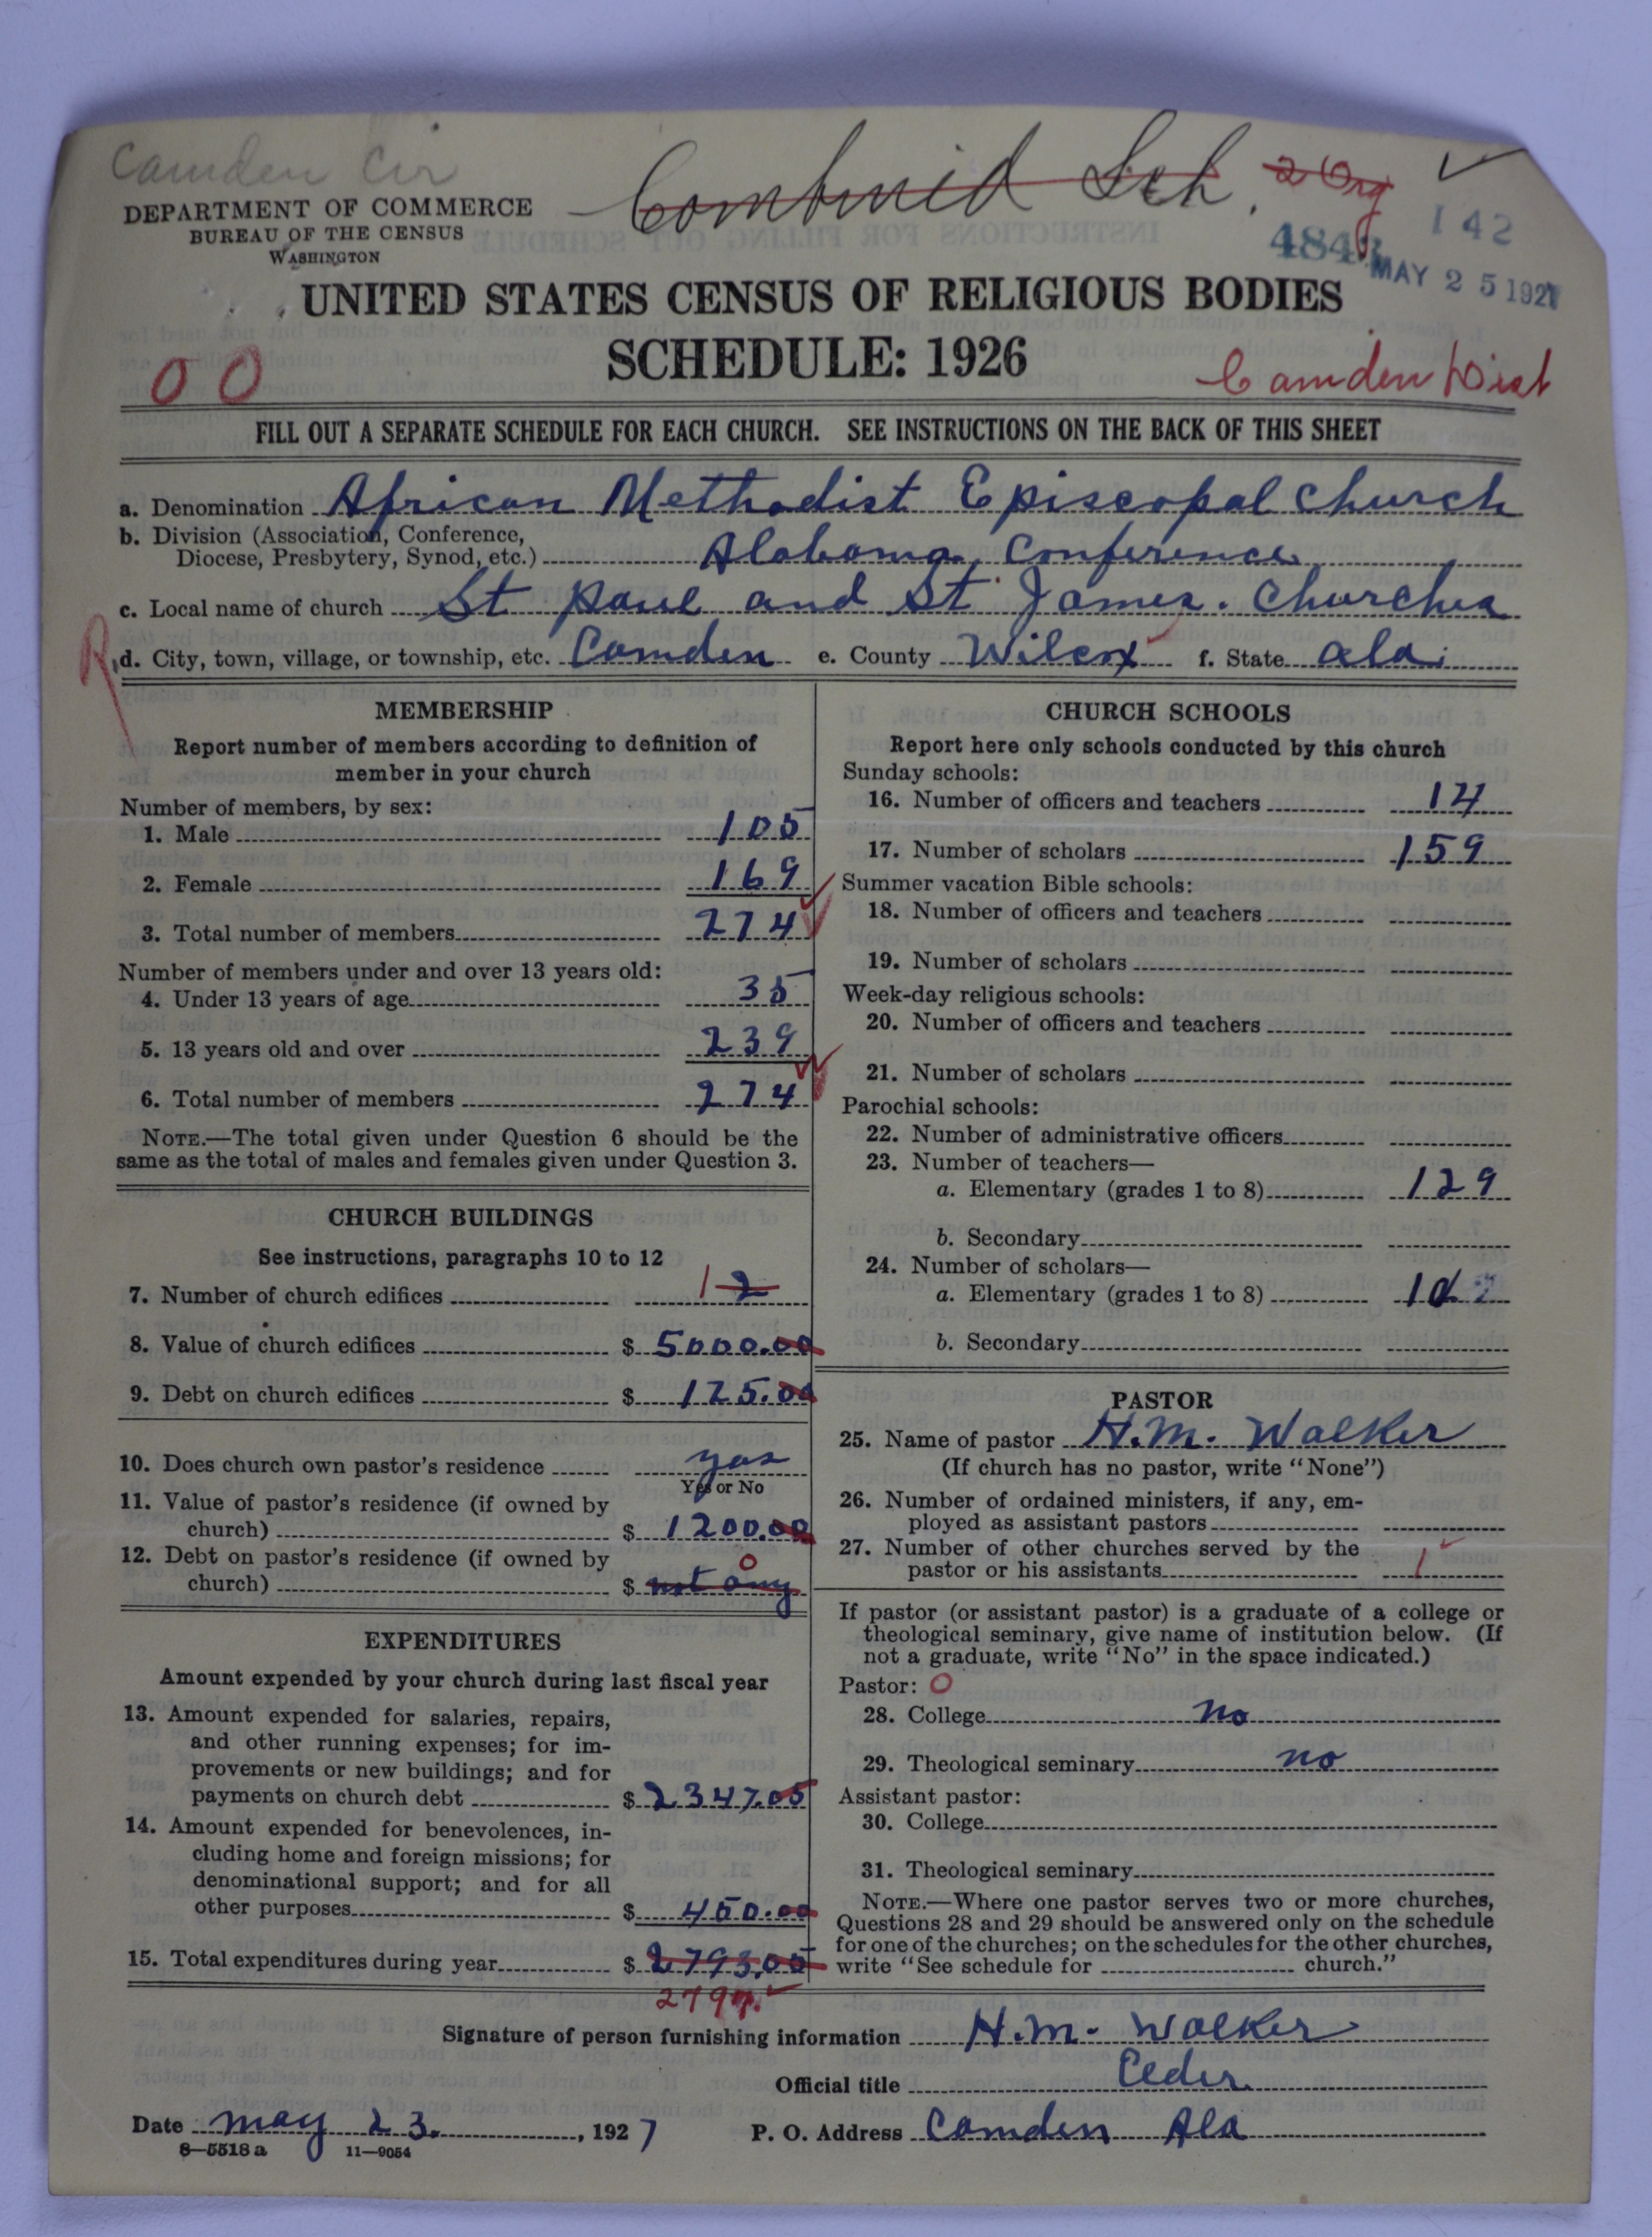 Camden Cir
Combined Sch. 2 Org
DEPARTMENT OF COMMERCE
BUREAU OF THE CENSUS
WASHINGTON
142
MAY 25 1927
UNITED STATES CENSUS OF RELIGIOUS BODIES
SCHEDULE: 1926
00
Camden Dist
FILL OUT A SEPARATE SCHEDULE FOR EACH CHURCH. SEE INSTRUCTIONS ON THE BACK OF THIS SHEET
a. Denomination African Methodist Episcopal Church
b. Division (Association, Conference,
Diocese, Presbytery, Synod, etc.) Alabama Conference
c. Local name of church St Paul and St James. Churches
R
d. City, town, village, or township, etc. Camden e. County Wilcox f. State Ala.
MEMBERSHIP
Report number of members according to definition of
member in your church
Number of members, by sex:
1. Male 105
2. Female 169
3. Total number of members 274
Number of members under and over 13 years old:
4. Under 13 years of age 35
5. 13 years old and over 239
6. Total number of members 274
NOTE.—The total given under Question 6 should be the
same as the total of males and females given under Question 3.
CHURCH BUILDINGS
See instructions, paragraphs 10 to 12
7. Number of church edifices 1 2
8. Value of church edifices $ 5000.00
9. Debt on church edifices $ 125.00
10. Does church own pastor's residence yas
Yes or No
11. Value of pastor's residence (if owned by
church) $ 1200.00
12. Debt on pastor's residence (if owned by
church) $ not any 0
EXPENDITURES
Amount expended by your church during last fiscal year
13. Amount expended for salaries, repairs,
and other running expenses; for im-
provements or new buildings; and for
payments on church debt $ 2347.05
14. Amount expended for benevolences, in-
cluding home and foreign missions; for
denominational support; and for all
other purposes $ 450.00
15. Total expenditures during year $ 2793.05
2797.
CHURCH SCHOOLS
Report here only schools conducted by this church
Sunday schools:
16. Number of officers and teachers 14
17. Number of scholars 159
Summer vacation Bible schools:
18. Number of officers and teachers
19. Number of scholars
Week-day religious schools:
20. Number of officers and teachers
21. Number of scholars
Parochial schools:
22. Number of administrative officers
23. Number of teachers—
a. Elementary (grades 1 to 8) 129
b. Secondary
24. Number of scholars—
a. Elementary (grades 1 to 8)
b. Secondary
PASTOR
25. Name of pastor H.M. Walker
(If church has no pastor, write "None")
26. Number of ordained ministers, if any, em-
ployed as assistant pastors
27. Number of other churches served by the
pastor or his assistants 1
If pastor (or assistant pastor) is a graduate of a college or
theological seminary, give name of institution below. (If
not a graduate, write "No" in the space indicated.)
Pastor: 0
28. College No
29. Theological seminary no
Assistant pastor:
30. College
31. Theological seminary
NOTE.—Where one pastor serves two or more churches,
Questions 28 and 29 should be answered only on the schedule
for one of the churches; on the schedules for the other churches,
write "See schedule for church."
Signature of person furnishing information H.M. Walker
Official title Elder
Date May 23. , 1927 P. O. Address Camden Ala
8—5518 a 11—9054